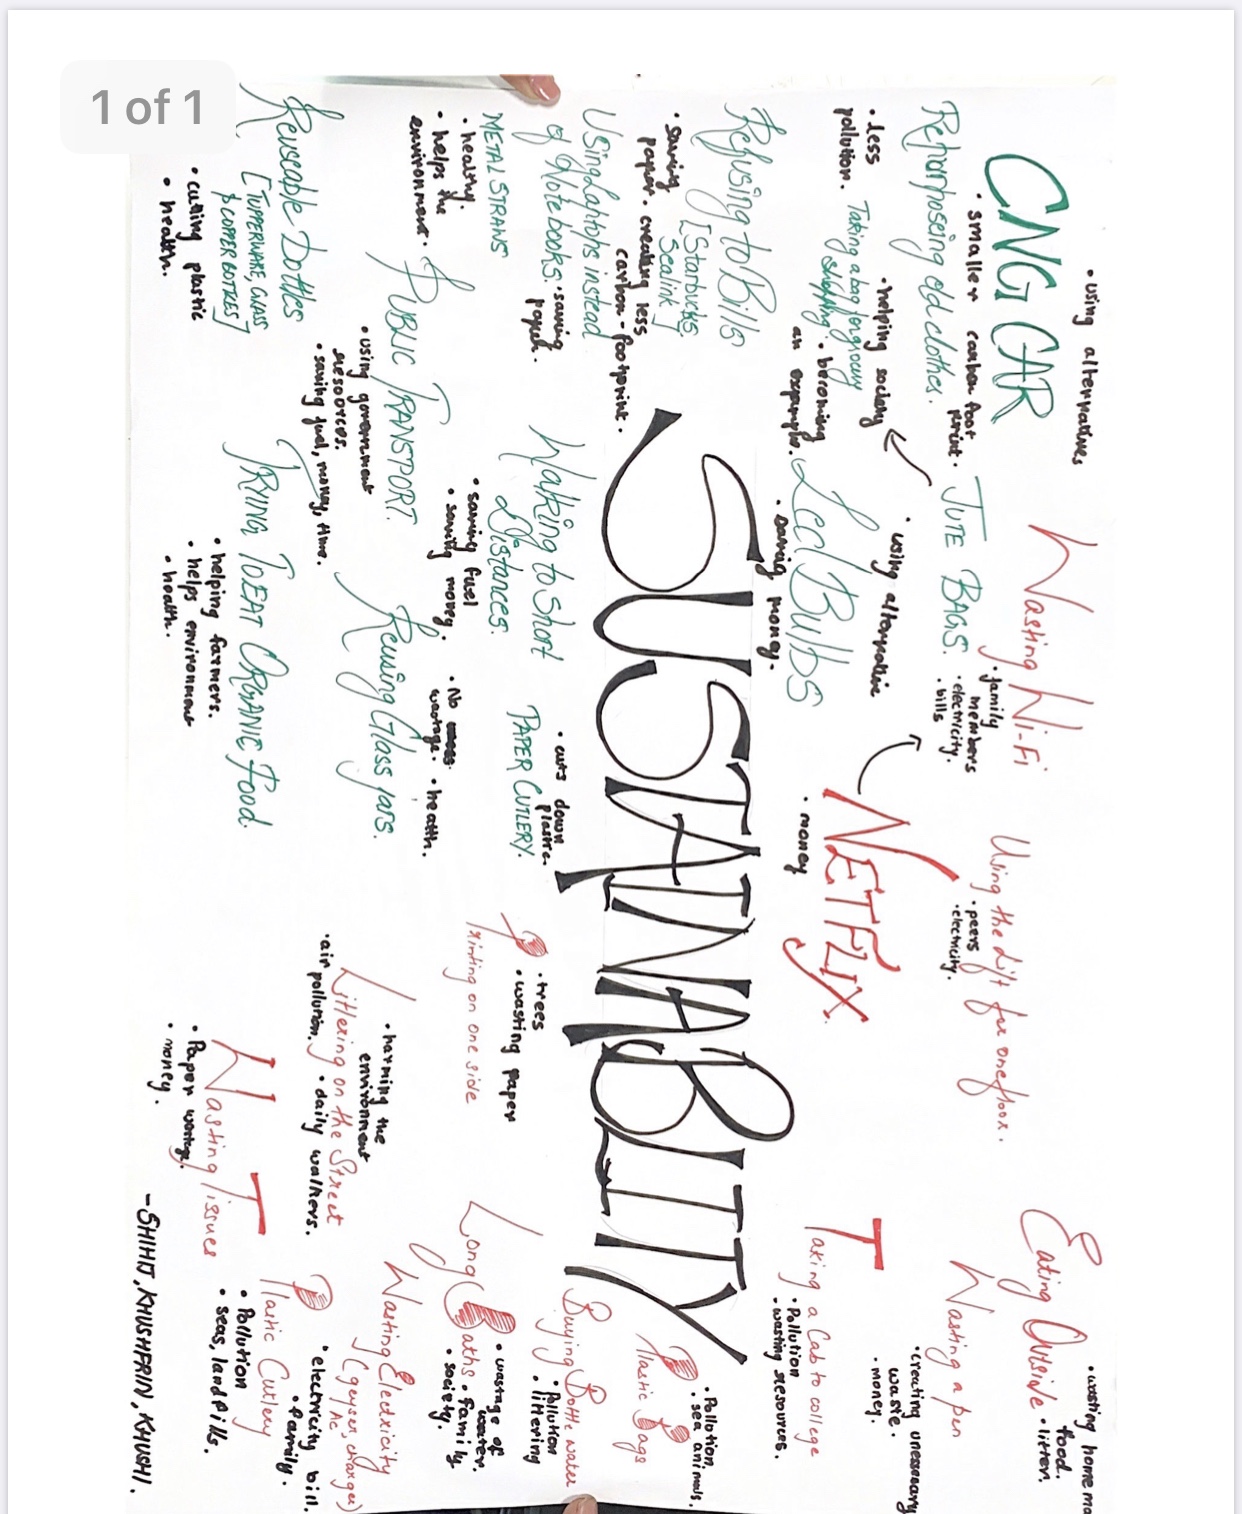 1 of 1
• using alternatives
CNG CAR
• smaller carbon foot
print.
Repurposeing old clothes.
• less
pollution.
• helping society
Taking a bag for grocery
shopping.
• becoming
an example.
Refusing to Bills
[Starbucks,
Sealink]
• saving
paper.
• creating less
carbon-footprint.
Using Laptops instead
of Notebooks.
• saving
paper.
METAL STRAWS
• healthy.
• helps the
environment.
PUBLIC TRANSPORT.
• using government
resources.
• saving fuel, money, time.
Reuseable Bottles
[TUPPERWARE, GLASS
& COPPER BOTTLES]
• cutting plastic
• health.
JUTE BAGS.
• using alternative
Led Bulbs
• saving money.
Walking to Short
Distances.
• saving fuel
• saving money.
Reusing Glass jars.
• No
wastage.
• health.
TRYING TO EAT ORGANIC Food.
• helping farmers.
• helps environment
• health.
PAPER CUTLERY.
• cuts down
plastic
SUSTAINABILITY
Wasting Wi-Fi
• family
members
• electricity.
• bills
NETFLIX.
• money
Using the Lift for one floor.
• peers
• electricity.
Printing on one side
• trees
• wasting paper
Littering on the Street
• harming the
environment
• air pollution.
• daily walkers.
Wasting Tissues
• Paper wastage.
• money.
Eating Outside
• wasting home ma
food.
• litter.
Wasting a pen
• creating unessecary
waste.
• money.
Taking a Cab to college
• Pollution
• wasting resources.
Plastic Bags
• Pollution.
• sea animals.
Buying Bottle water
• Pollution
• littering
Long Baths
• wastage of
water.
• family
• society.
Wasting Electricity
(geyser, charger)
AC
• electricity bill.
• family.
Plastic Cutlery
• Pollution
• seas, landfills.
- SHIHIJ, KHUSHFRIN, KHUSHI.